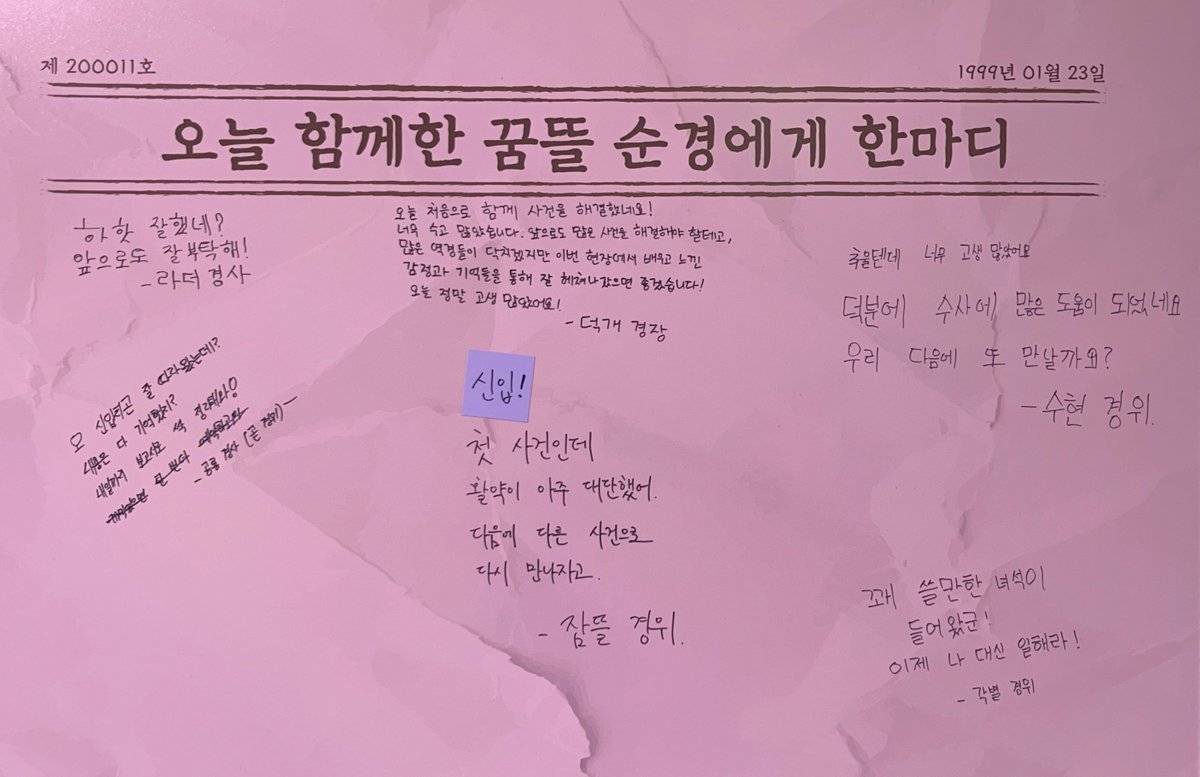 제 200011호
1999년 01월 23일
오늘 함께한 꿈뜰 순경에게 한마디
하핫 잘했네?
앞으로도 잘 부탁해!
- 라더 경사
오늘 처음으로 함께 사건을 해결했네요!
너무 수고 많았습니다. 앞으로도 많은 사건을 해결해야 할테고,
많은 역경들이 닥치겠지만 이번 현장에서 배우고 느낀
감정과 기억들을 통해 잘 헤쳐나갔으면 좋겠습니다!
오늘 정말 고생 많았어요!
- 덕개 경장
추울텐데 너무 고생 많았어요
덕분에 수사에 많은 도움이 되었네요
우리 다음에 또 만날까요?
- 수현 경위.
오 신입치곤 잘 따라왔는데?
내용은 다 기억했지?
내일까지 보고서요
- 공룡 경사
신입!
첫 사건인데
활약이 아주 대단했어.
다음에 다른 사건으로
다시 만나자고.
- 잠뜰 경위.
꽤 쓸만한 녀석이
들어왔군!
이제 나 대신 일해라!
- 각별 경위